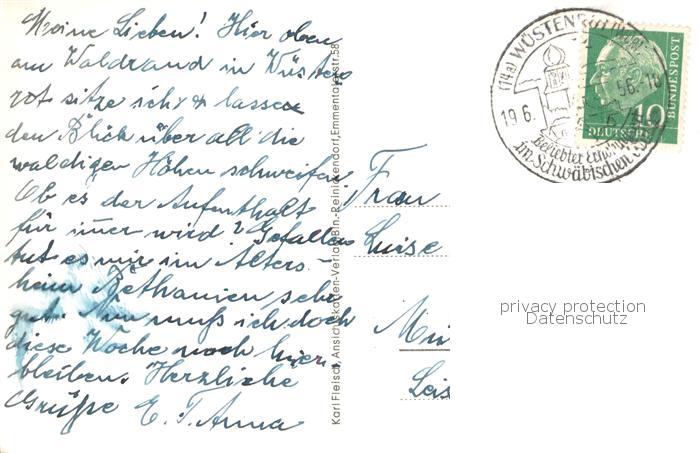 Meine Lieben! Hier oben
am Waldrand in Wüsten
rot sitze ich & lasse
den Blick über all die
waldigen Höhen schweifen
Ob es der Aufenthalt
für imer wird? Gefallen
tut es mir im Alters-
heim Bethanien sehr
gut. Nun muß ich doch
diese Woche noch hier
bleiben. Herzliche
Grüße E. T. Anna
Karl Fleisch, Ansichtskarten-Verlag, Bln.-Reinickendorf, Emmentalerstr. 58
(14a) WÜSTENROT
19.6.56.-10
Beliebter
im Schwäbischen
10
DEUTSCHE
BUNDESPOST
Frau
Luise
privacy protection
Datenschutz